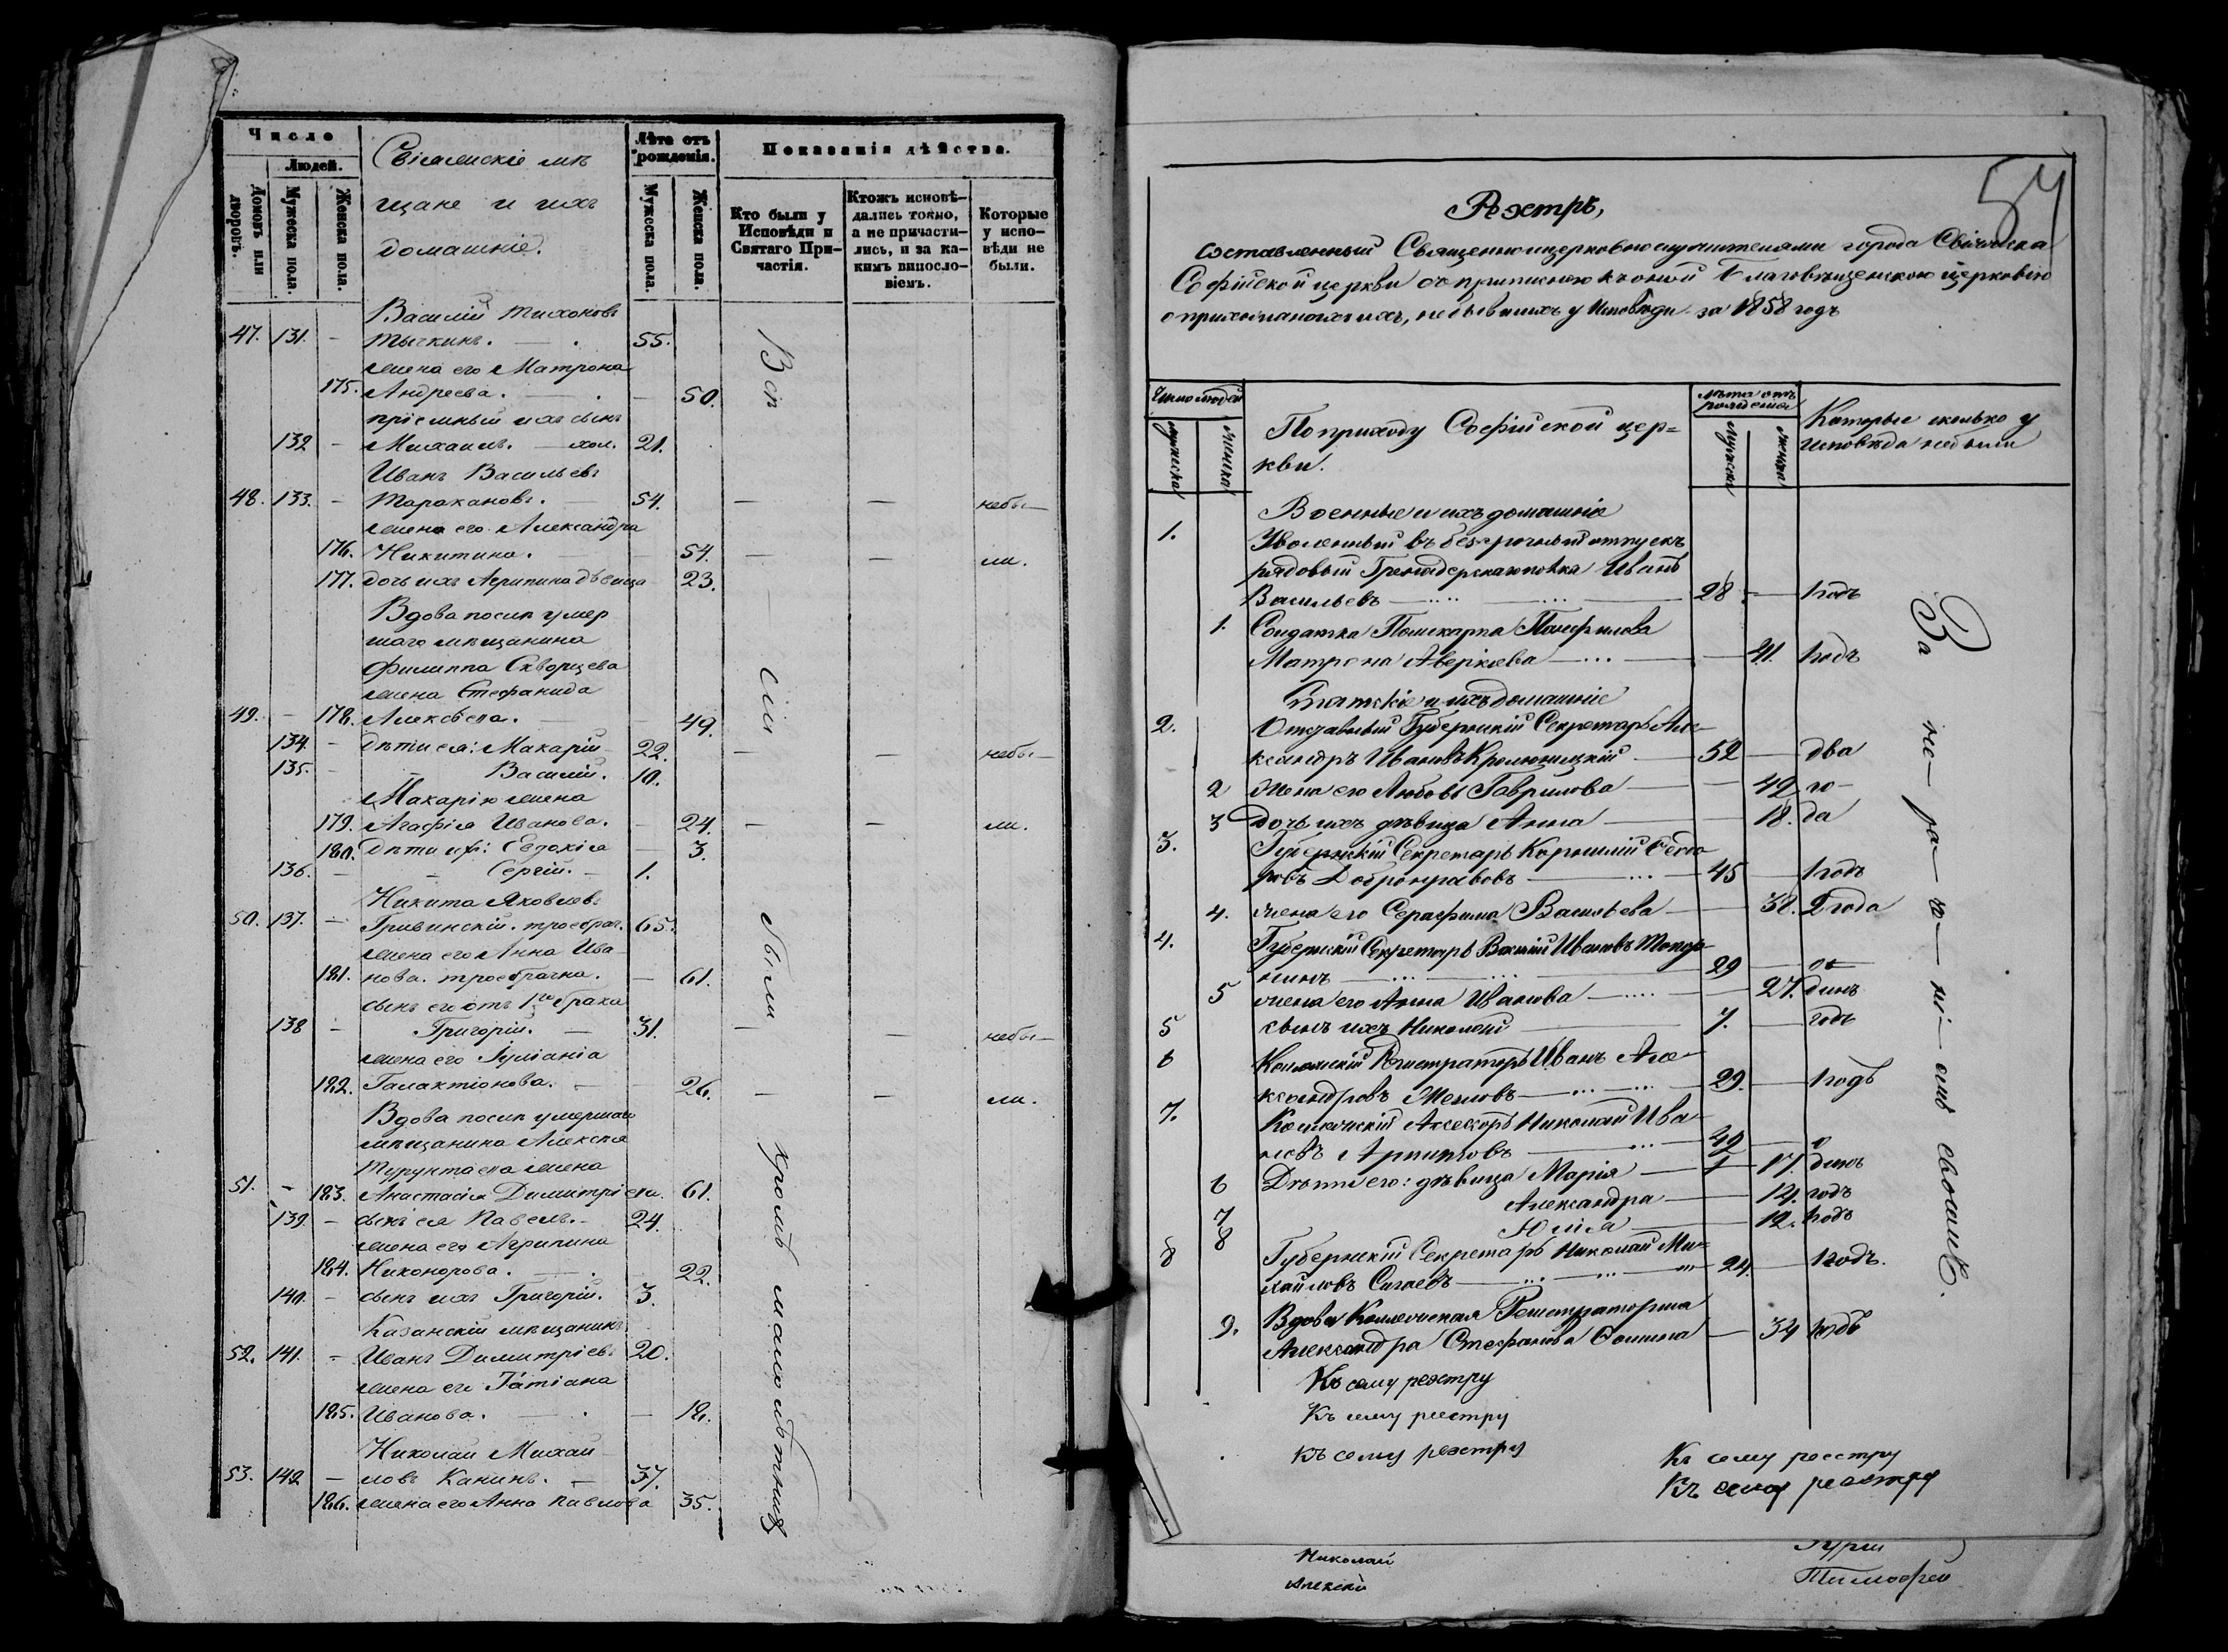 Число
Людей.
Домовъ или дворовъ.
Мужеска пола.
Женска пола.
Свіяжскіе мѣ
щане и ихъ
домашніе.
Лѣта отъ рожденія.
Мужеска пола.
Женска пола.
Показанія дѣйства.
Кто были у Исповѣди и Святаго При-частія.
Ктожъ исповѣ-дались токмо, а не причасти-лись, и за ка-кимъ винosло-віемъ.
Которые у испо-вѣди не были.
Василій Тихоновъ
47. 131. — Тычкинъ. — 55.
жена его Матрона
175. Андреева. — 50.
пріемный ихъ сынъ
132 — Михаилъ. — хол. 21.
Иванъ Васильевъ
48. 133. — Тараканова. — 54. — — небы—
жена его Александра
176. Никитина. 54. — — ли.
177. дочь ихъ Агрипина дѣвица 23.
Вдова послѣ умер
шаго мѣщанина
Филиппа Скворцева
жена Стефанида
49. — 178. Алексѣева. — 49.
134. — дѣти ея: Макарій 22. — — небы—
135. — Василій. 10.
Макарія жена
179. Агафія Иванова. — 24. — — ли.
180. дѣти ихъ: Евдокія — 3.
136. — Сергій. — 1.
Никита Яковлевъ
50. 137. — Гривинскій. троебрач. 65.
жена его Анна Ива
181. нова. троебрачна. — 61.
сынъ его отъ 1го брака
138 — Григорій. — 31. — — небы—
жена его Іуліанія
182. Галактіонова. — 26. — — ли.
Вдова послѣ умершаго
мѣщанина Алексѣя
Турунтаева жена
51. — 183. Анастасія Димитріева. 61.
139. — сынъ ея Павелъ. — 24.
жена его Агрипина
184. Никонорова. — 22.
140. — сынъ ихъ Григорій. 3.
Казанскій мѣщанинъ
52. 141. — Иванъ Димитріевъ 20.
жена его Татіана
185. Иванова. — 18.
Николай Михай
53. 142 — ловъ Канинъ. — 37.
186. жена его Анна Павлова 35.
Всѣ сіи были кромѣ малолѣтнихъ
54
Реэстръ,
составленный Священноцерковнослужителями города Свіяжска
Софійской церкви съ приписною къ оной Благовѣщенскою церковію
о прихожанахъ ихъ, небывшихъ у Исповѣди за 1858 годъ
Число людей
мужеска
женска
По приходу Софійской цер=
кви.
лѣта отъ рожденія
мужска
женска
Которые сколько у
исповѣди небыли
Военные и ихъ домашніе
1. Уволенный въ безсрочный отпускъ
рядовый Гренадерскаго полка Иванъ
Васильевъ — 28 — 1 годъ
1. Солдатка Поликарпа Панфилова
Матрона Аверкіева — 41. 1 годъ
Статскіе и ихъ домашніе
2. Отставный Губернскій Секретарь Але-
ксандръ Ивановъ Кролюницкій — 52 — два
2 жена его Любовь Гаврилова — 49 го-
3 дочь ихъ дѣвица Анна — 18. да
3. Губернскій Секретарь Корнилій Ѳедо
ровъ Добронравовъ — 45 — 1 годъ
4. жена его Серафима Васильева — 38. 2 года
4. Губернскій Секретарь Василій Ивановъ Топор
нинъ — 29 — о-
5 жена его Анна Иванова — 27. динъ
5 сынъ ихъ Николай — 7. — годъ
6 Коллежскій Регистраторъ Иванъ Але-
ксандровъ Меловъ — 29. — 1 годъ
7. Коллежскій Ассесоръ Николай Ива-
новъ Архиповъ — 49 — о
6 Дѣти его: дѣвица Марія — 17. динъ
7 Александра — 14. годъ
8 Юлія — 12. годъ
8 Губернскій Секретарь Николай Ми-
хайловъ Сигаевъ — 24. — 1 годъ.
9. Вдова Коллежская Регистраторша
Александра Стефанова Ѳомина — 34 годъ
За не-ра-дѣ-ні-емъ своимъ.
Къ сему реэстру
Къ сему реестру
Къ сему реэстру
Къ сему реестру
Къ сему реэстру
Николай
Алексѣй
Гурій
Тимофей